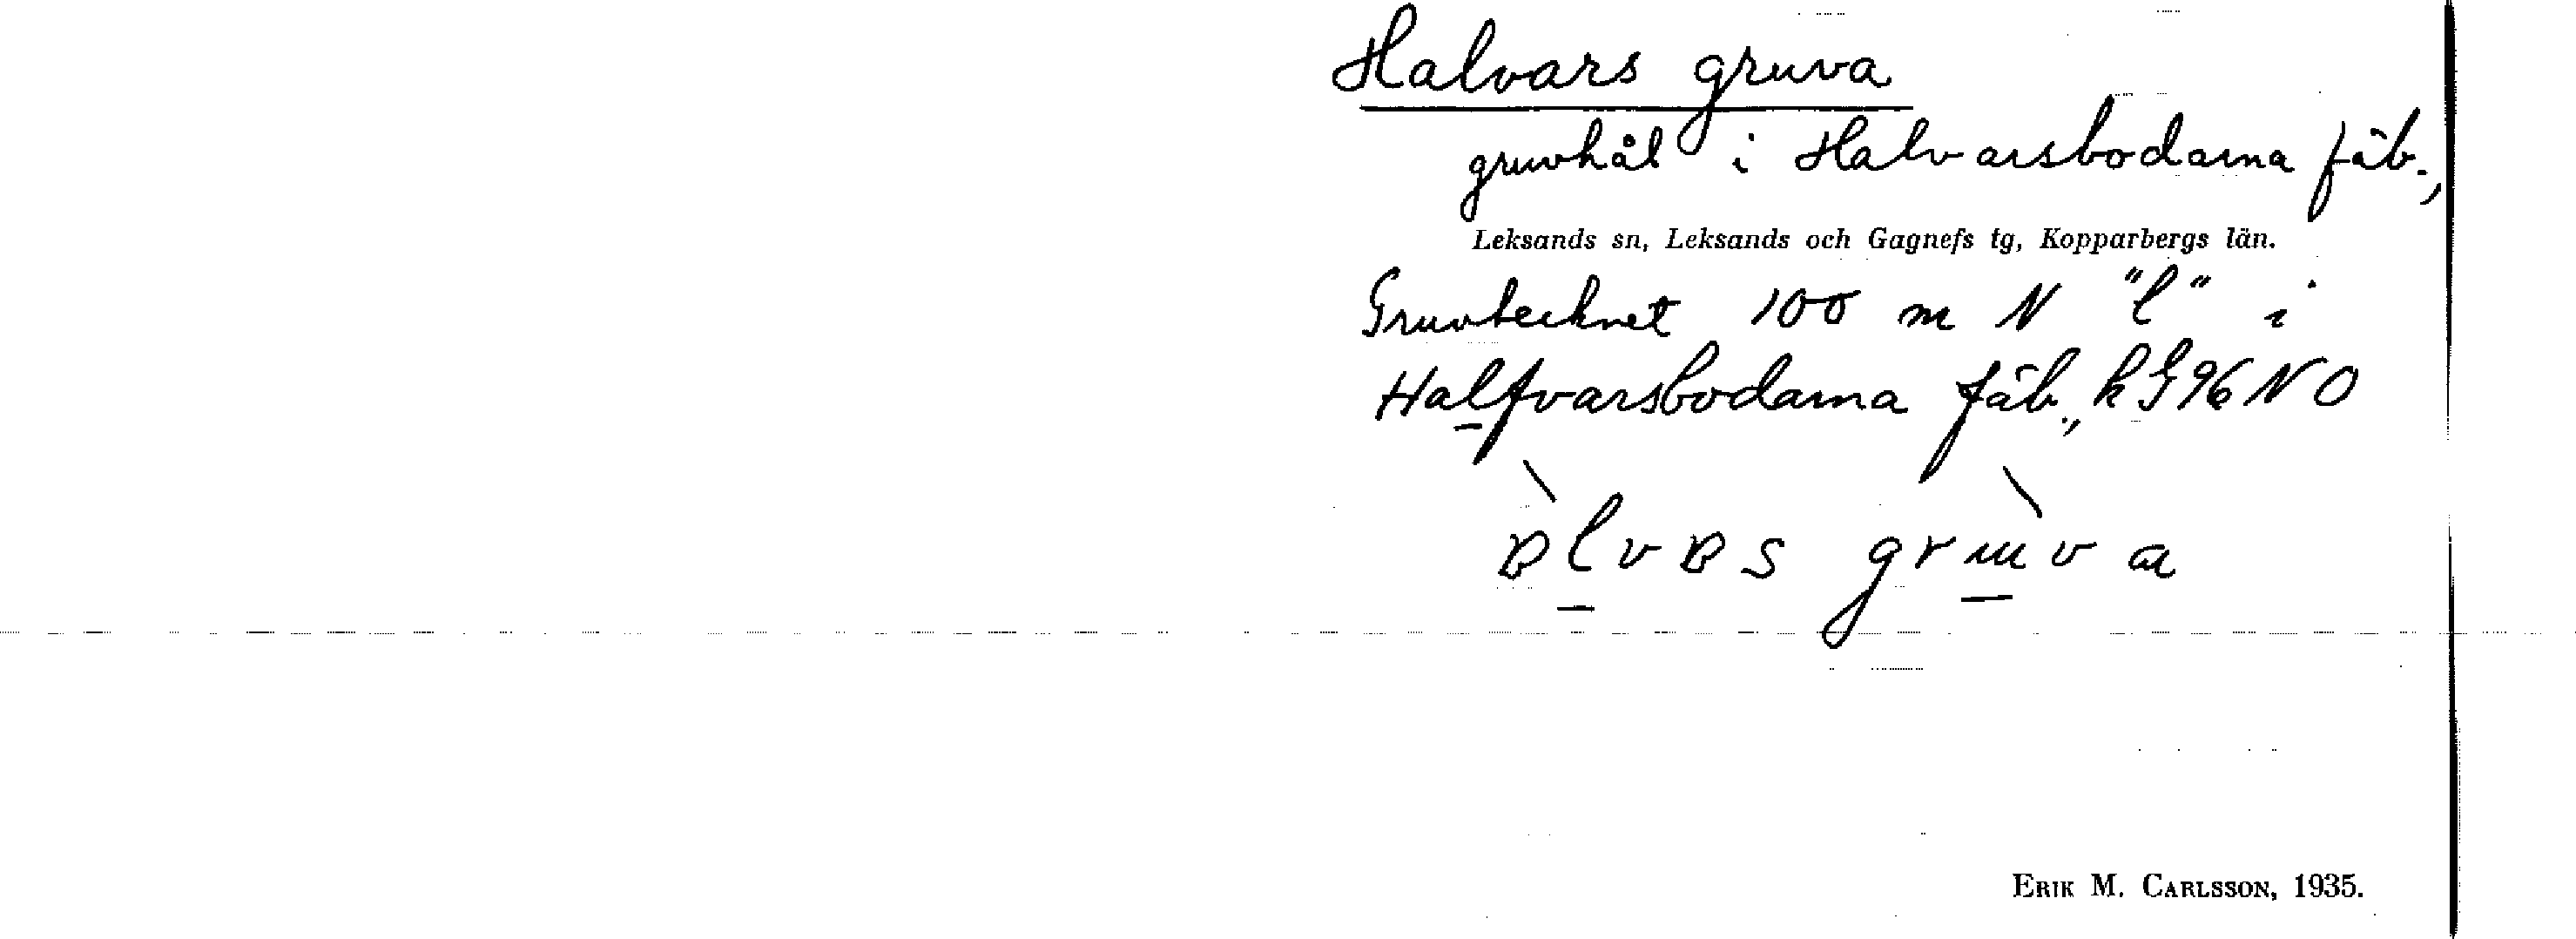 Halvars gruva
gruvhål i Halvarsbodarna fäb.,
Leksands sn, Leksands och Gagnefs tg, Kopparbergs län.
Gruvtecknet 100 m N "l" i
Halfvarsbodarna fäb., k G96 NO
ERIK M. CARLSSON, 1935.